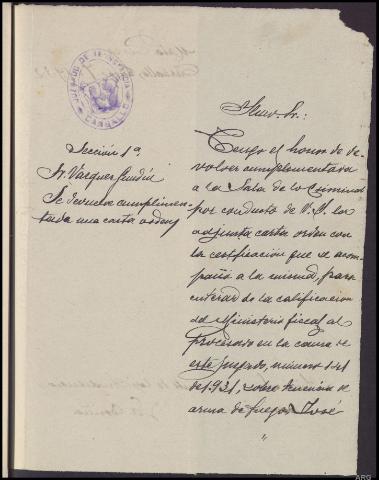 JUZGADO DE INSTRUCCIÓN
CARBALLO
Sección 1ª
Sr. Vazquez Gundín
Se devuelve cumplimen-
tada una carta orden
Iltmo. Sr.:
Tengo el honor de de-
volver cumplimentada
a la Sala de lo Criminal
por conducto de V.S. la
adjunta carta orden con
la certificación que se acom-
pañó a la misma, para
enterar de la calificacion
del Ministerio fiscal al
procesado en la causa de
este juzgado, número 141
de 1931, sobre tenencia de
arma de fuego José
"
ARG